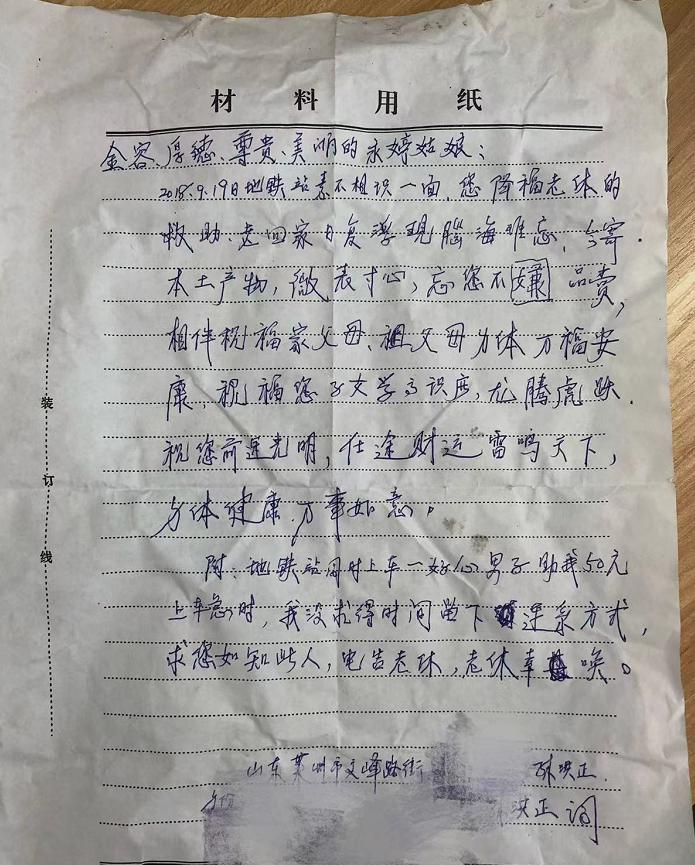 材料用纸
金容、厚德、尊贵、美丽的永婷姑娘：
2018.9.19日地铁站素不相识一面，您降福老休的
救助，走回家日复浮现腦海难忘，今寄
本土产物，微表寸心，忘您不嫌品贵，
相伴祝福家父母、祖父母身体万福安
康，祝福您子女学高识广，龙腾虎跃．
祝您前途光明，仕途财运雷鸣天下，
身体健康．万事如意。
附：地铁站同时上车一好心男子助我50元
上车急时，我没求得时间留下连系方式，
求您如知此人，电告老休，老休幸 唤。
山东莱州市文峰路街
洪正．
洪正
装
订
线